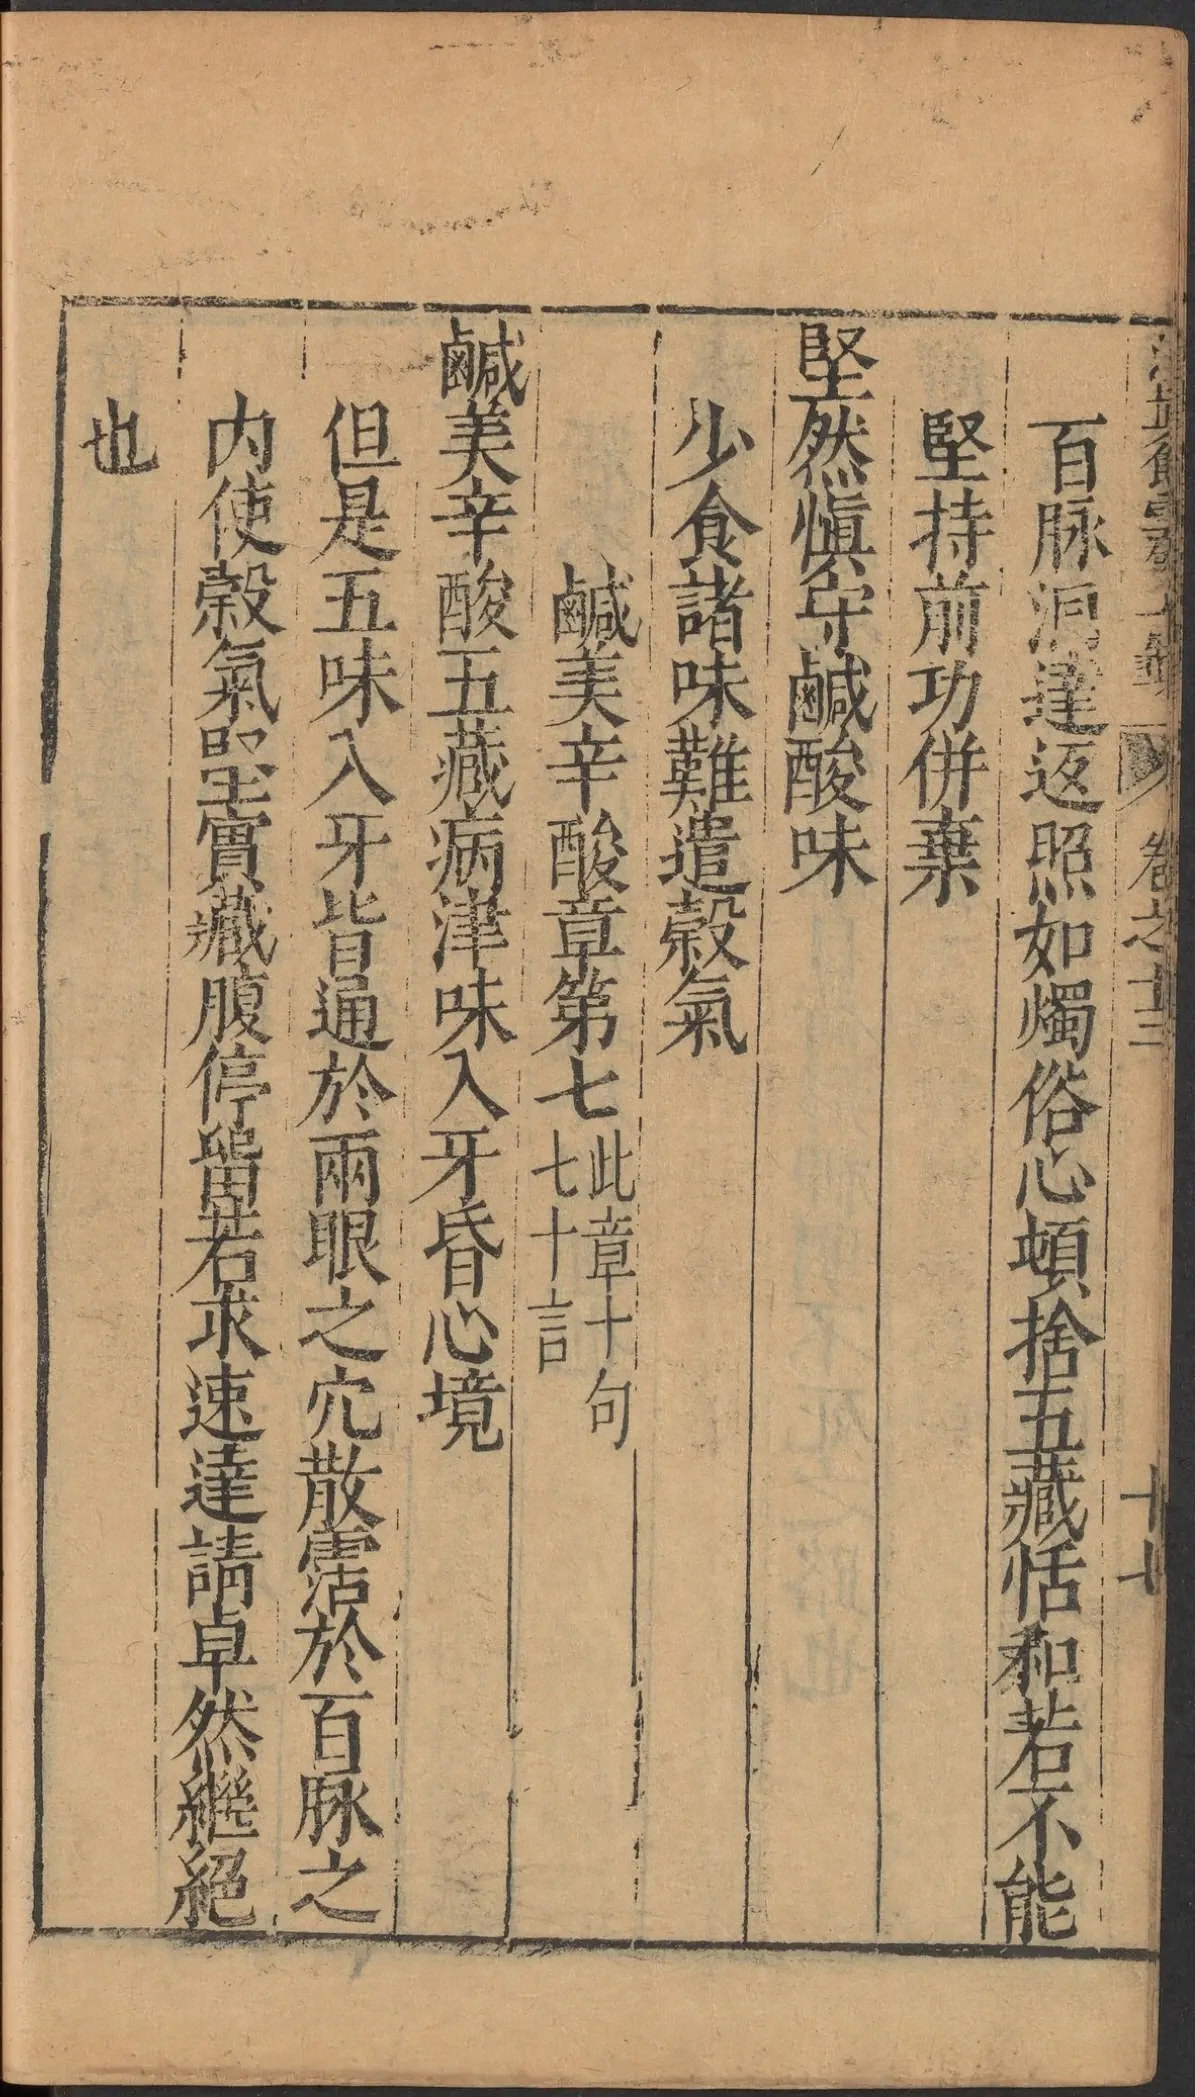 卷之十三
十七
百脉洞達返照如燭俗心頓捨五藏恬和若不能
堅持前功併棄
堅然愼守鹹酸味
少食諸味難遣穀氣
鹹美辛酸章第七此章十句
七十言
鹹美辛酸五藏病津味入牙昏心境
但是五味入牙皆通於兩眼之穴散霑於百脉之
内使穀氣堅實藏腹停留若求速達請卓然繼絕
也